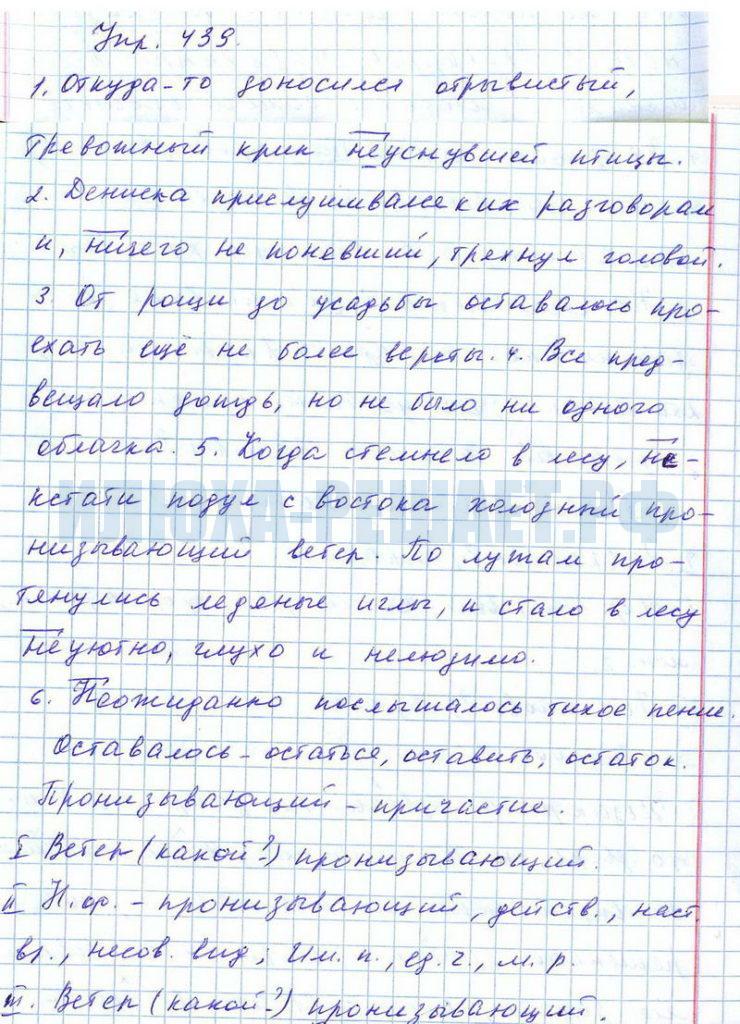 Упр. 439.
1. Откуда-то доносился отрывистый,
тревожный крик неуснувшей птицы.
2. Дениска прислушивался к их разговорам
и, ничего не понявший, трехнул головой.
3. От рощи до усадьбы оставалось про-
ехать ещё не более версты. 4. Все пред-
вещало дождь, но не было ни одного
облачка. 5. Когда стемнело в лесу, не-
кстати подул с востока холодный про-
ИЛЮХА-РЕШАЕТ.РФ
низывающий ветер. По лужам про-
тянулись ледяные иглы, и стало в лесу
неуютно, глухо и нелюдимо.
6. Неожиданно послышалось тихое пение.
Оставалось - остаться, оставить, остаток.
Пронизывающий - причастие.
I Ветер (какой?) пронизывающий.
II Н.ф. - пронизывающий, действ., наст.
вр., несов. вид; Им. п., ед. ч., м. р.
III. Ветер (какой?) пронизывающий.